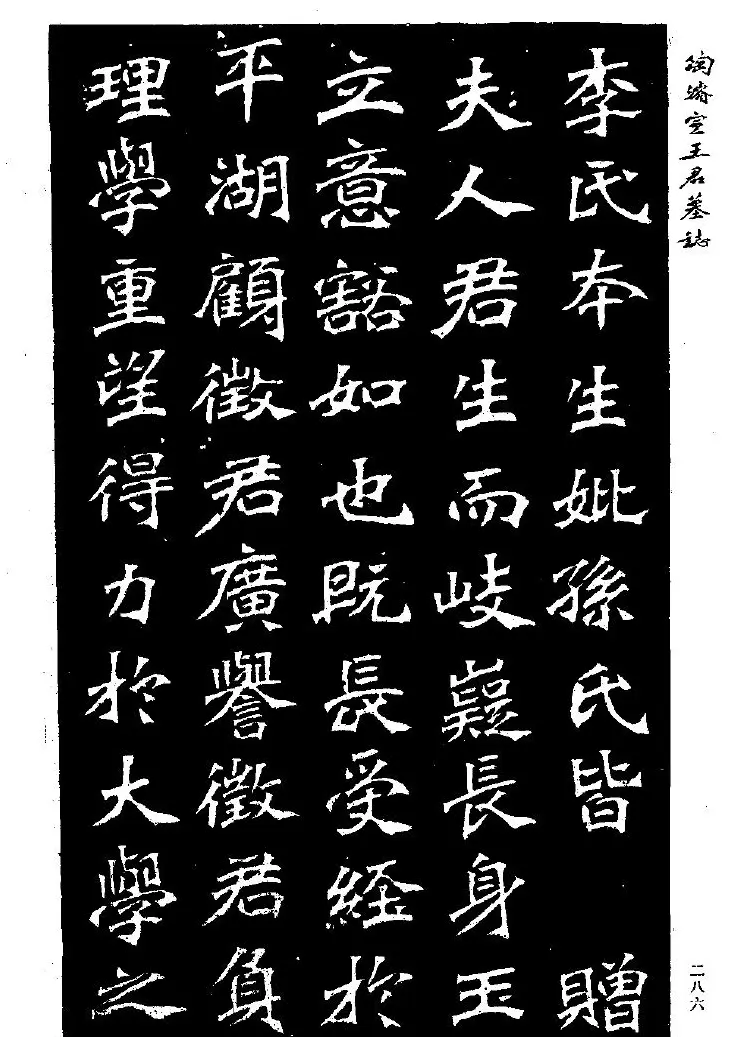 陶濬宣王君墓誌
李氏本生妣孫氏皆　贈
夫人君生而岐嶷長身玉
立意豁如也既長受經於
平湖顧徵君廣譽徵君負
理學重望得力於大學之
二八六